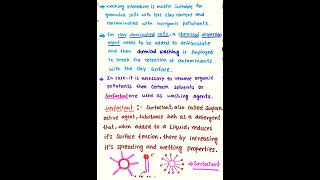 → Washing procedure is mostly suitable for
granular soils with less clay content and
contaminated with inorganic pollutants.
→ For clay dominated soils, a chemical dispersion
agent needs to be added to deflocculate
and then chemical washing is employed
to break the retention of contaminants
with the clay surface.
→ In case, it is necessary to remove organic
pollutants then certain solvents or
Surfactant are used as washing agents.
Surfactant :- Surfactant, also called surface
active agent, substance such as a detergent
that, when added to a liquid, reduces
it's surface tension, there by increasing
it's spreading and wetting properties.
→ Surfactant